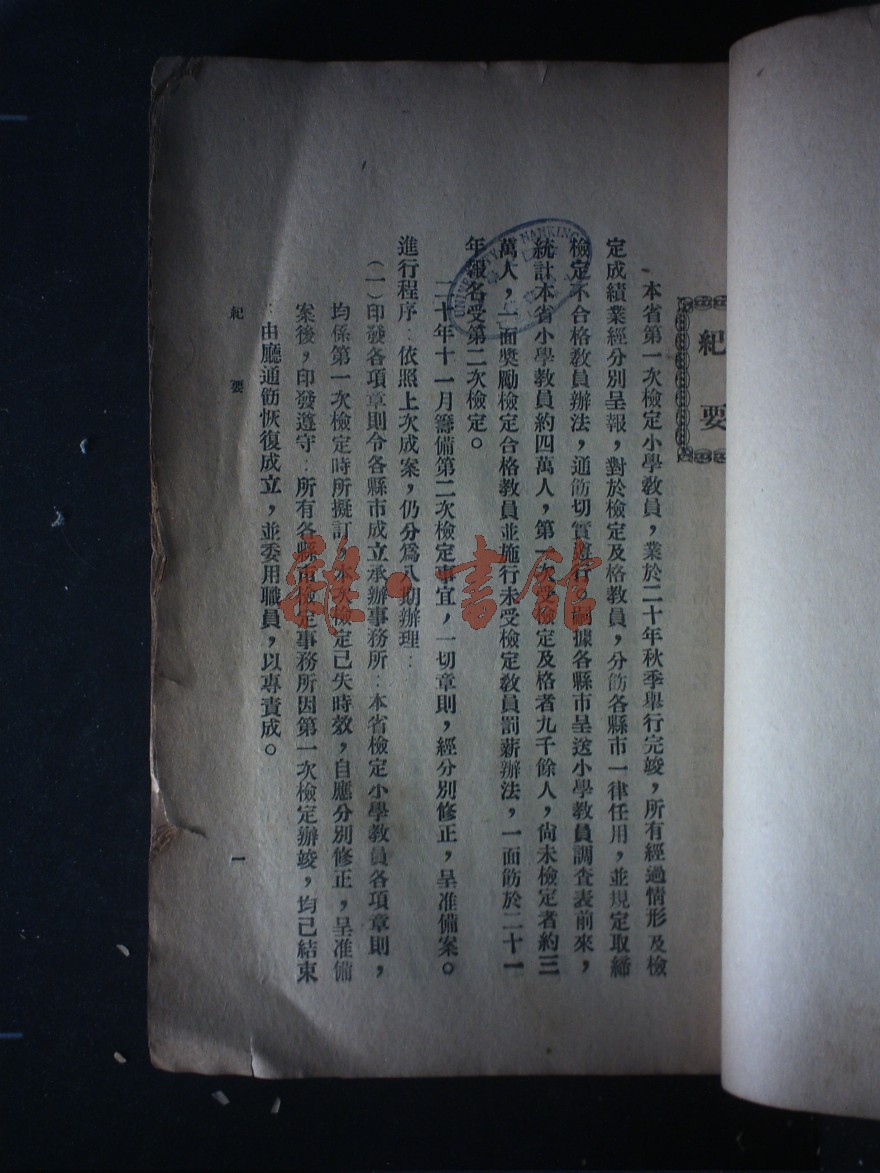 紀要
本省第一次檢定小學教員，業於二十年秋季舉行完竣，所有經過情形及檢
定成績業經分別呈報，對於檢定及格教員，分飭各縣市一律任用，並規定取締
檢定不合格教員辦法，通飭切實遵行，嗣據各縣市呈送小學教員調查表前來，
統計本省小學教員約四萬人，第一次受檢定及格者九千餘人，尙未檢定者約三
萬人，一面獎勵檢定合格教員並施行未受檢定教員罰薪辦法，一面飭於二十一
年報名受第二次檢定。
二十年十一月籌備第二次檢定事宜，一切章則，經分別修正，呈准備案。
進行程序：依照上次成案，仍分爲八期辦理：
（一）印發各項章則令各縣市成立承辦事務所：本省檢定小學教員各項章則，
均係第一次檢定時所擬訂，本次檢定已失時效，自應分別修正，呈准備
案後，印發遵守：所有各縣市檢定事務所因第一次檢定辦竣，均已結束
：由廳通飭恢復成立，並委用職員，以專責成。
紀要
一
NANKING
雜·書館